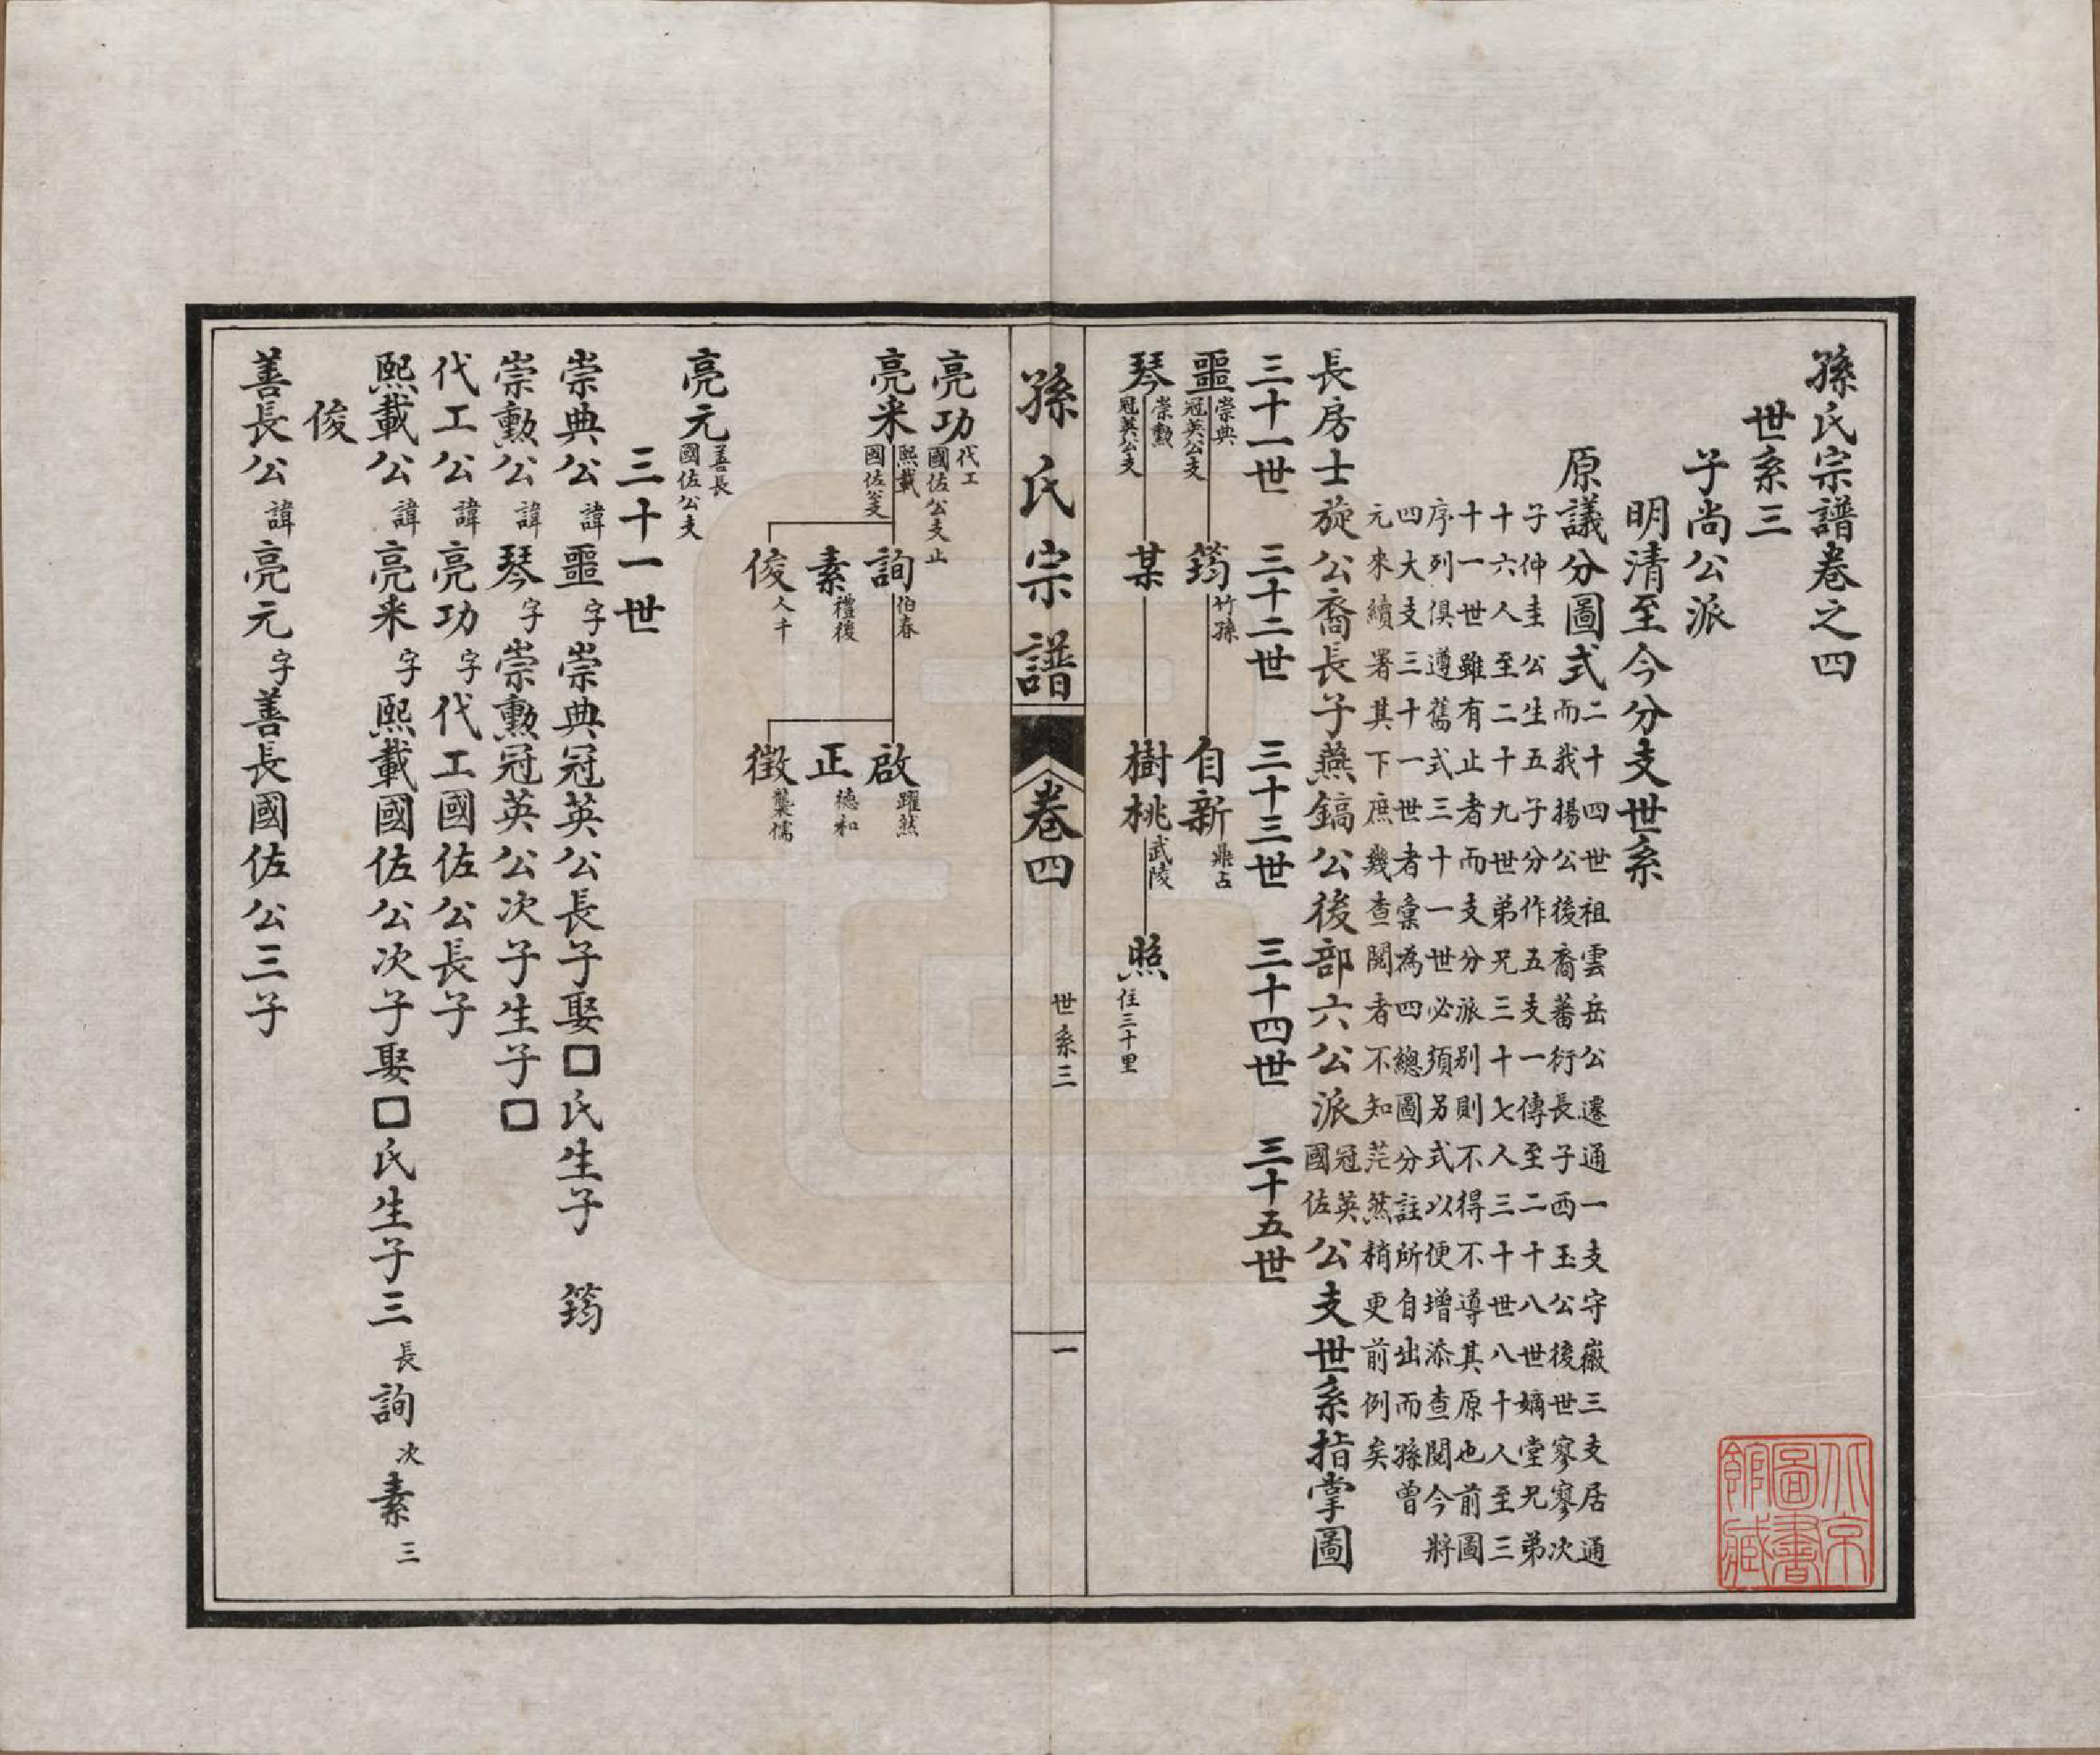 孫氏宗譜卷之四
世系三
子尚公派
明清至今分支世系
原議分圖式
二十四世祖雲岳公遷通一支守嶶三支居通
而我揚公後裔蕃衍長子西玉公後世寥寥次
子仲圭公生五子分作五支一傳至二十八世嫡堂兄弟
十六人至二十九世弟兄三十七人三十世八十人至三
十一世雖有止者而支分派別則不得不導其原也前圖
序列俱遵舊式三十一世必須另式以便增添查閱今將
四大支三十一世者彙為四總圖分註所自出而孫曾
元來續署其下庶幾查閱者不知茫然稍更前例矣
長房士旋公裔長子燕鎬公後部六公派冠英國佐公支世系指掌圖
三十一世 三十二世 三十三世 三十四世 三十五世
噩 崇典 冠英公支 筠 竹孫 自新 鼎占
琴 崇勳 冠英公支 某 樹桃 武陵 照 住三十里
孫氏宗譜 卷四 世系三 一
亮功 代工 國佐公支 止
亮來 熙載 國佐公支 詢 伯春 啟 躍然
素 禮後 正 德和
俊 人千 徵 襲儒
亮元 善長 國佐公支
三十一世
崇典公諱噩字崇典冠英公長子娶□氏生子 筠
崇勳公諱琴字崇勳冠英公次子生子□
代工公諱亮功字代工國佐公長子
熙載公諱亮來字熙載國佐公次子娶□氏生子三長詢次素三
俊
善長公諱亮元字善長國佐公三子
北京圖書館藏